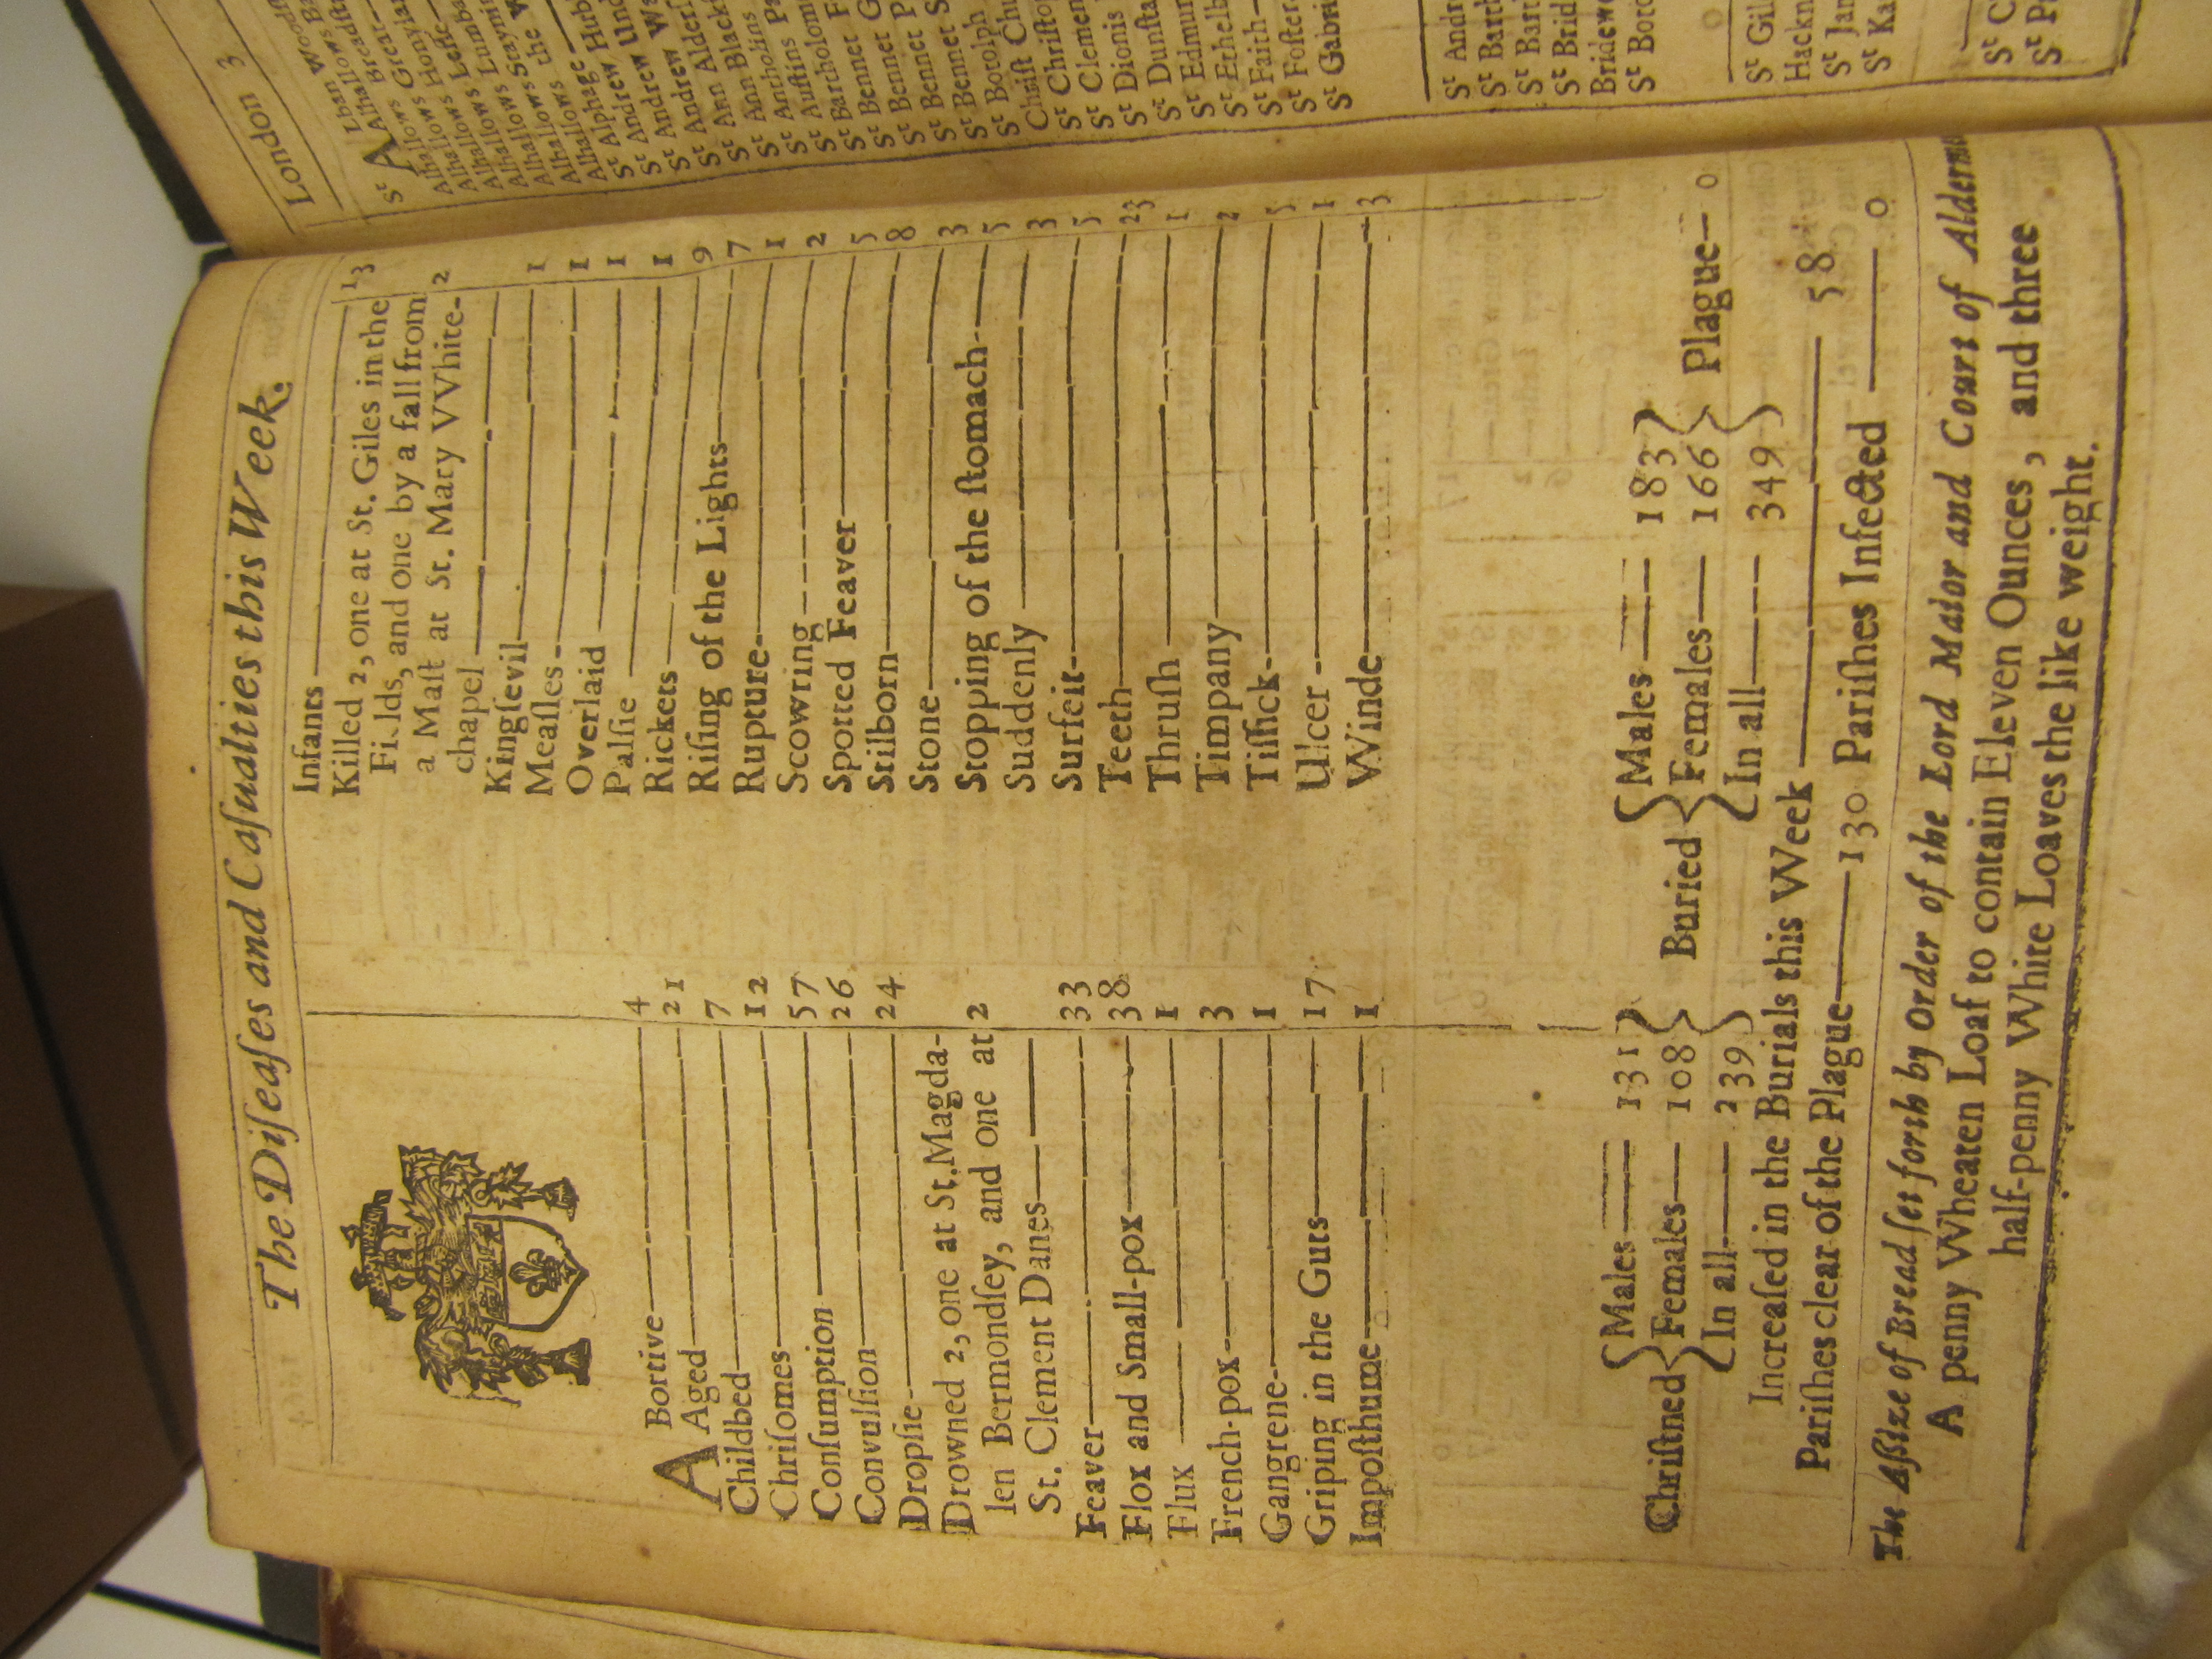 The Diſeaſes and Caſualties this Week.
ABortive 4
Aged 21
Childbed 7
Chriſomes 12
Conſumption 57
Convulſion 26
Dropſie 24
Drowned 2, one at St. Magda-
len Bermondſey, and one at 2
St. Clement Danes
Feaver 33
Flox and Small-pox 38
Flux 1
French-pox 3
Gangrene 1
Griping in the Guts 17
Impoſthume 1
Infants 13
Killed 2, one at St. Giles in the
Fields, and one by a fall from
a Maſt at St. Mary VVhite- 2
chapel
Kingſevil 1
Meaſles 1
Overlaid 1
Palſie 1
Rickets 9
Riſing of the Lights 7
Rupture 1
Scowring 2
Spotted Feaver 5
Stilborn 8
Stone 3
Stopping of the ſtomach 5
Suddenly 3
Surfeit 5
Teeth 23
Thruſh 1
Timpany 2
Tiſſick 5
Ulcer 1
Winde 3
Chriſtned
Males 131
Females 108
In all 239
Buried
Males 183
Females 166
In all 349
Plague 0
Increaſed in the Burials this Week 58
Pariſhes clear of the Plague 130 Pariſhes Infected 0
The Aſſize of Bread ſet forth by Order of the Lord Maior and Court of
A penny Wheaten Loaf to contain Eleven Ounces, and three
half-penny White Loaves the like weight.
London 3
St A
Alhallows
Alhallows Great
Alhallows Honylan
Alhallows Leſſe
Alhallows Lumba
Alhallows Staynin
Alhallows the W
Alhallows
Alphage
St Andrew Hub
St Andrew Und
St Andrew Wa
St Ann Alderſ
St Ann Black
St Ann Blins
St Antholins Pa
St Auſtins
St Bartholom
St Bennet F
St Bennet G
St Bennet P
St Bennet S
St Botolph
Chriſt Chu
St Chriſtop
St Clemen
St Dionis
St Dunſta
St Edmun
St Ethelb
St Faith
St Foſter
St Gabri
St Andr
St Barth
St Bart
St Brid
Bridewe
St Boto
St Gil
Hackn
St Jam
St Ka
St C
St P